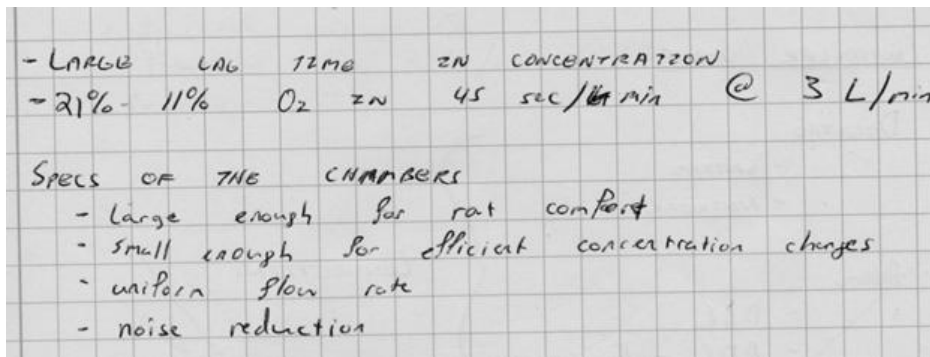 - LARGE LAG TIME IN CONCENTRATION
- 21% - 11% O2 IN 45 sec/ min @ 3 L/min
SPECS OF THE CHAMBERS
- large enough for rat comfort
- small enough for efficient concentration changes
- uniform flow rate
- noise reduction